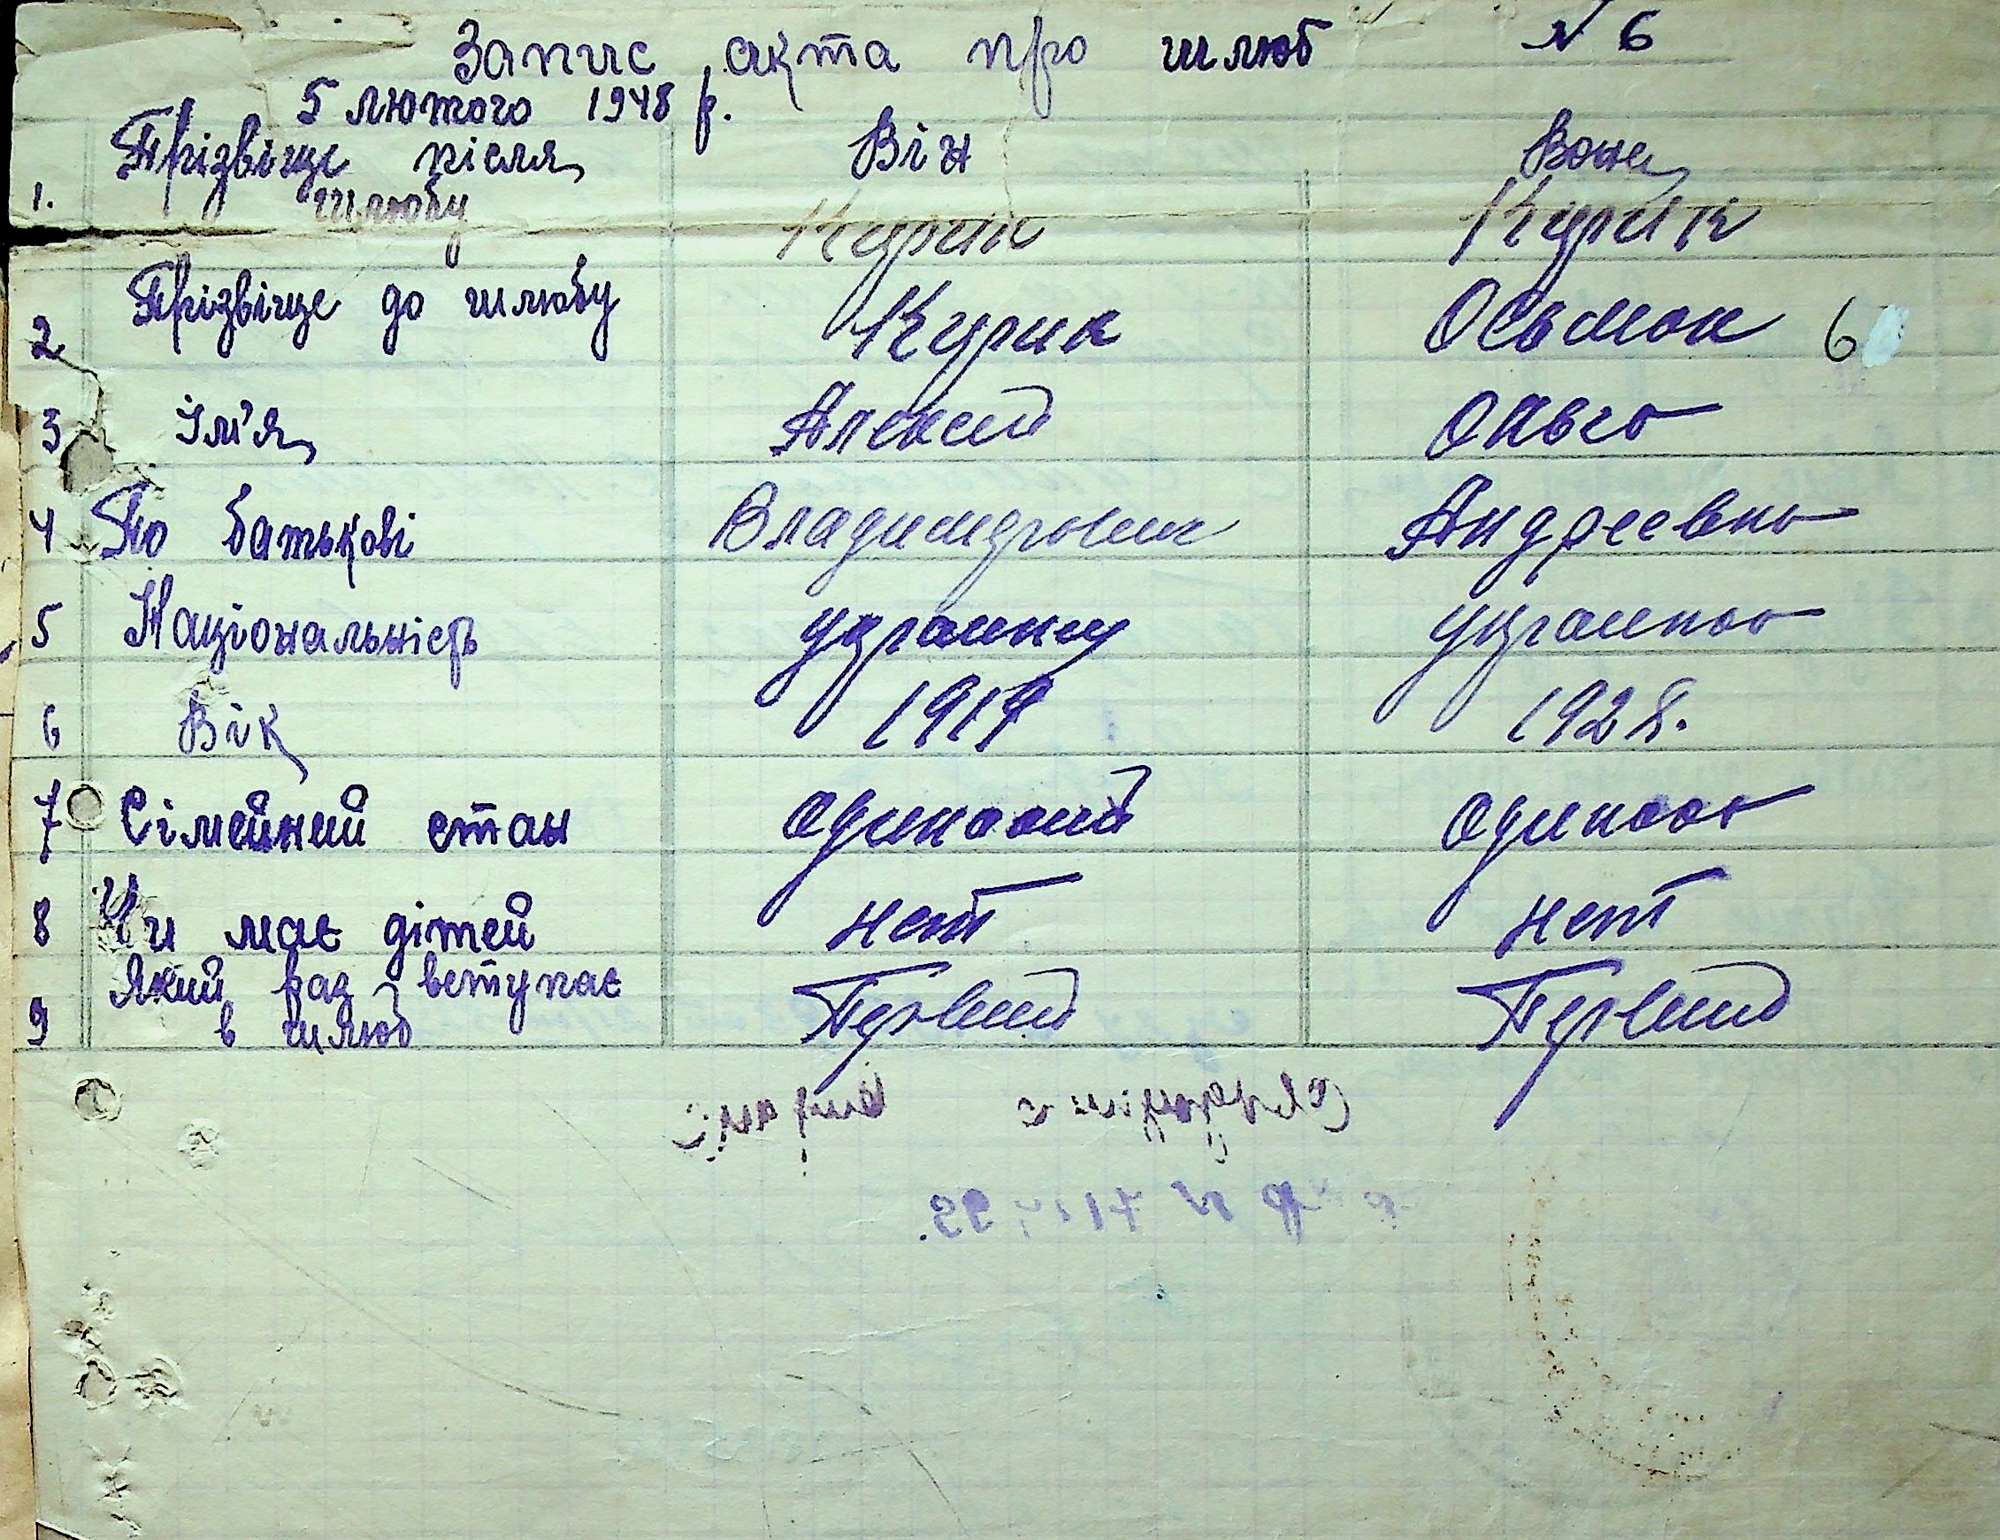 Запис акта про шлюб N 6
5 лютого 1948 р.
Він Вона
1. Прізвіще після шлюбу Курик Курик
2 Прізвіще до шлюбу Курик Осьмак 6
3 Ім'я Алексей Ольга
4 По батькові Владимирович Андреевна
5 Національність украинец украинка
6 Вік 1919 1928.
7 Сімейний стан одинокий одинока
8 Чи має дітей нет нет
9 Який раз вступає в шлюб Первий Первий